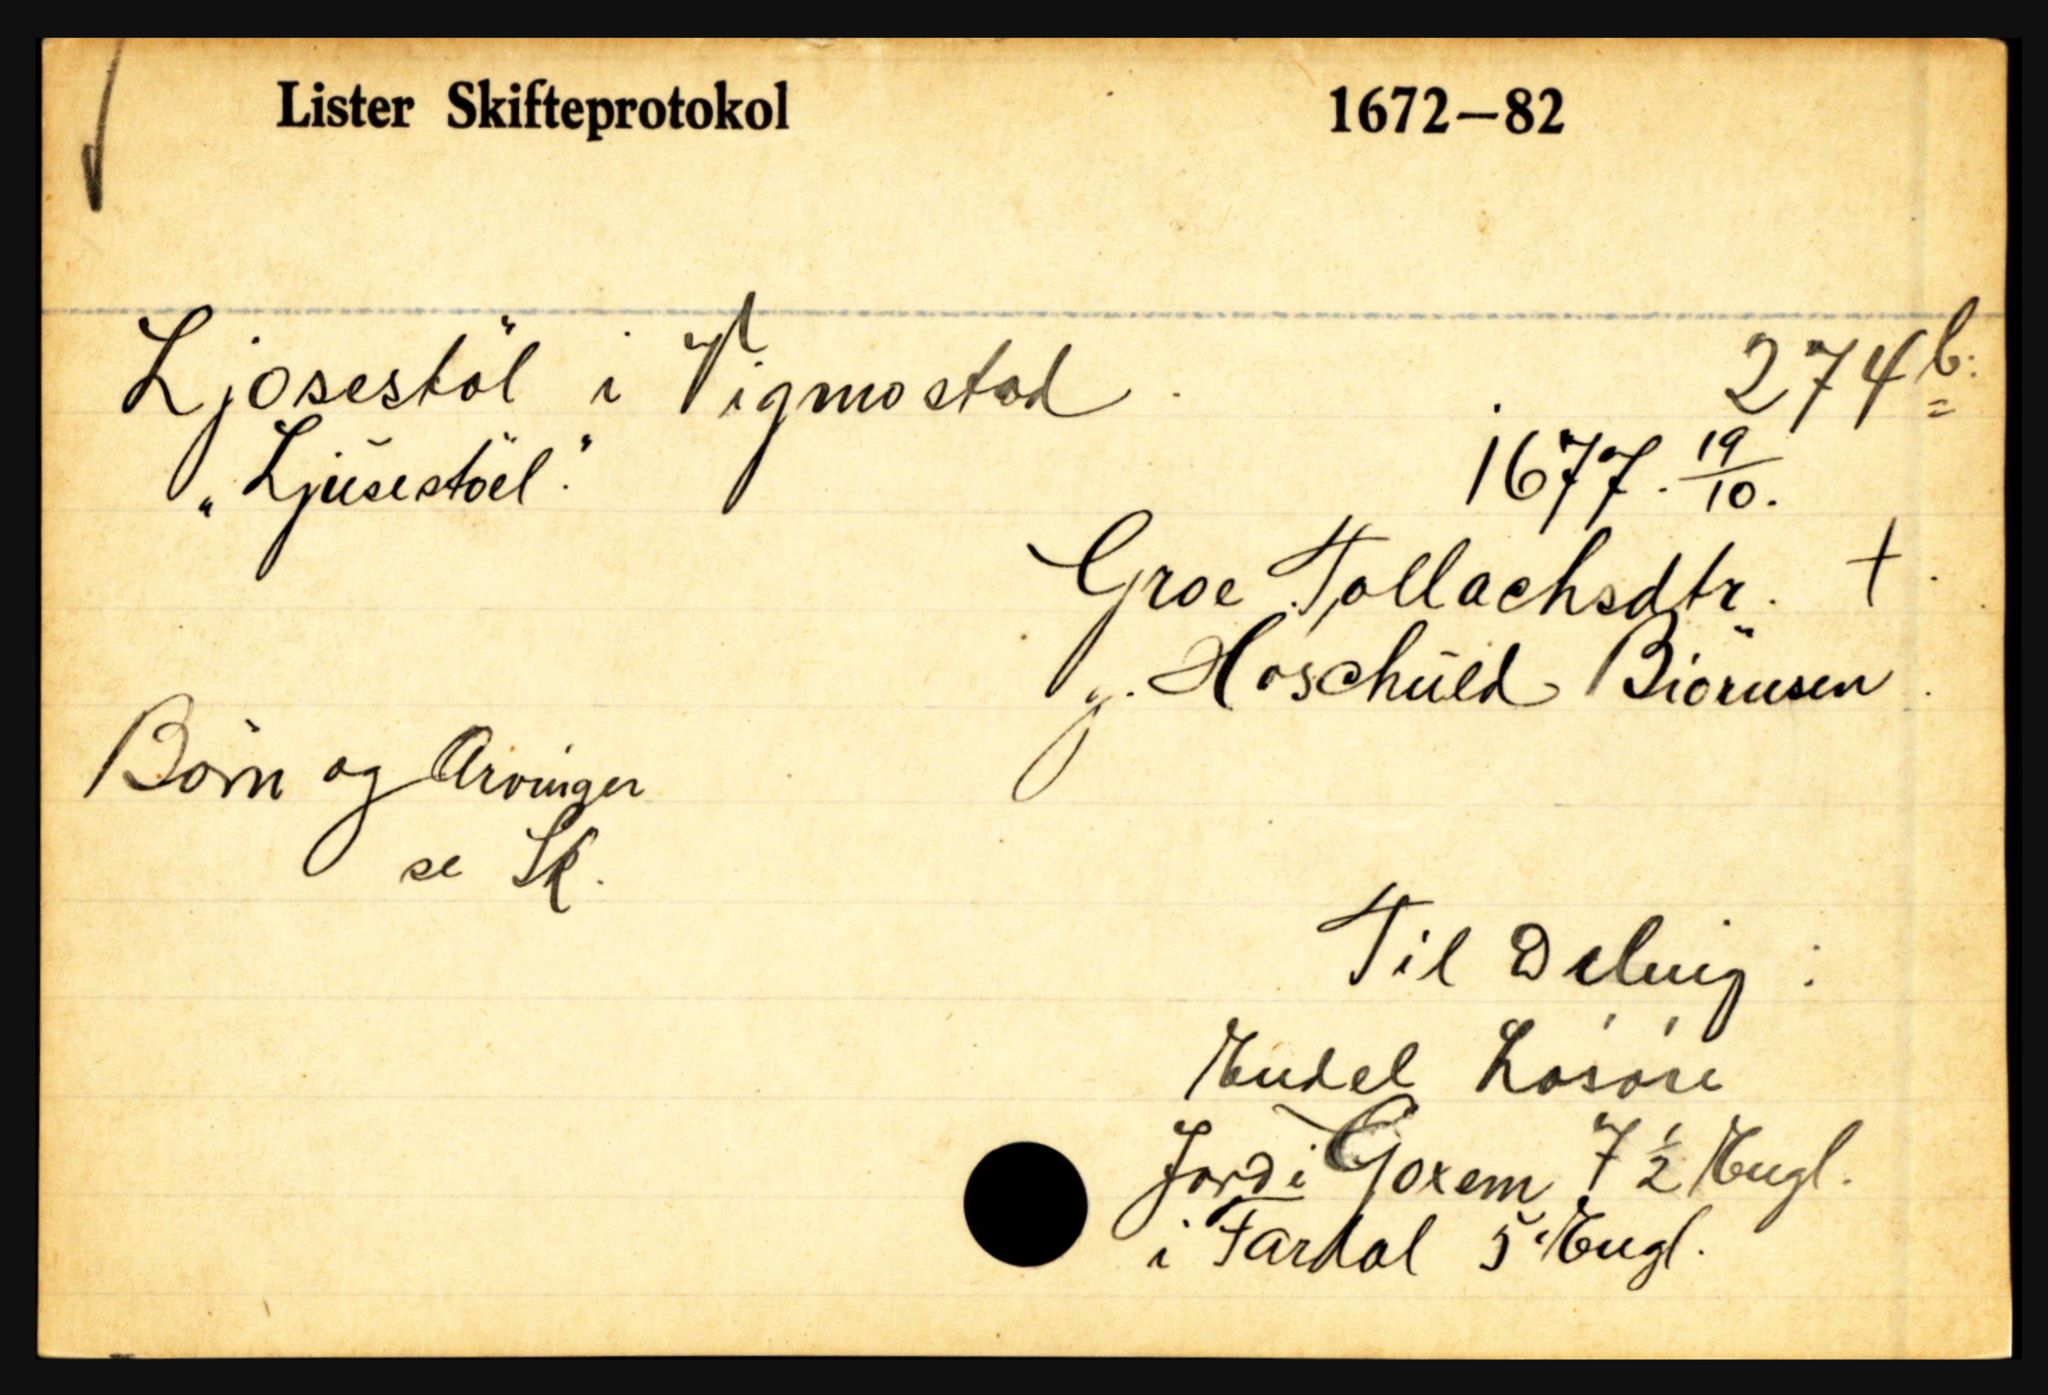 Lister Skifteprotokol 1672—82
Ljosestöl i Vigmostad. 274 b.
„Ljŭsestöel." 1677. 19/10.
Groe Tollachsdtr. +.
g. Hoschŭld Biörnsen.
Börn og Arvinger
se Sk.
Til Deling:
Endel Losöre
Jord i Goxem 7 1/2 Engl.
i Fardal 5 Engl.